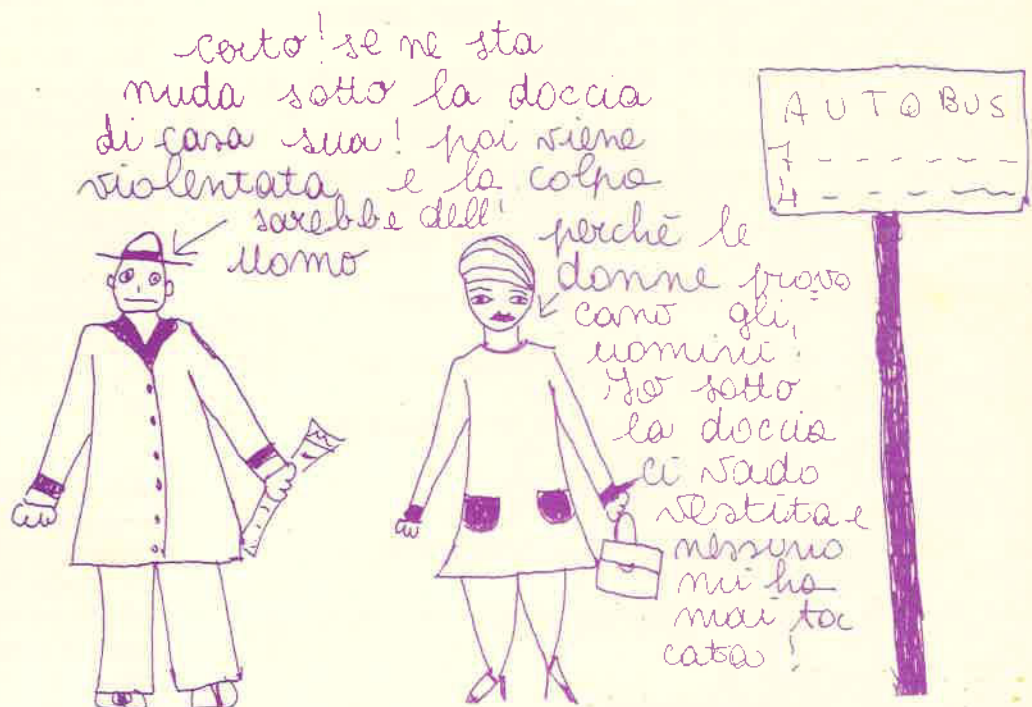 certo! se ne sta
nuda sotto la doccia
di casa sua! poi viene
violentata e la colpa
sarebbe dell'
uomo
perchè le
donne provo
cano gli
uomini.
Io sotto
la doccia
ci vado
vestita e
nessuno
mi ha
mai toc
cata!
AUTOBUS
7
4